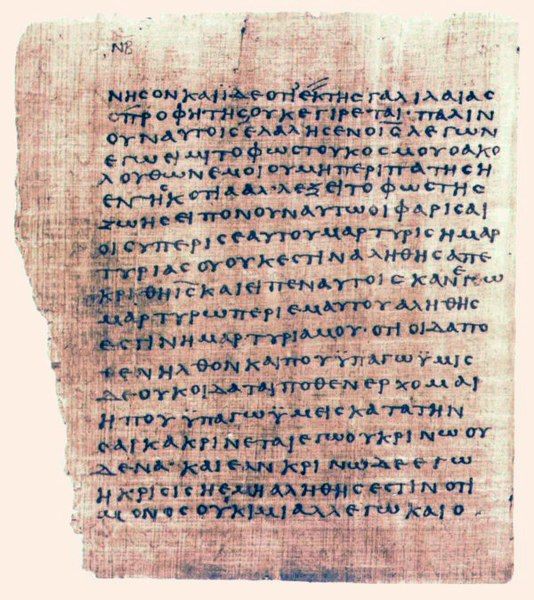 ΝΒ
ΝΗϹΟΝΚΑΙΙΔΕΟΤΙΕΚΤΗϹΓΑΛΙΛΑΙΑϹ
ΟΠΡΟΦΗΤΗϹΟΥΚΕΓΙΡΕΤΑΙ·ΠΑΛΙΝ
ΟΥΝΑΥΤΟΙϹΕΛΑΛΗϹΕΝΟΙϹΛΕΓΩΝ
ΕΓΩΕΙΜΙΤΟΦΩϹΤΟΥΚΟϹΜΟΥΟΑΚΟ
ΛΟΥΘΩΝΕΜΟΙΟΥΜΗΠΕΡΙΠΑΤΗϹΗ
ΕΝΤΗϹΚΟΤΙΑΑΛΛΕΞΕΙΤΟΦΩϹΤΗϹ
ΖΩΗϹΕΙΠΟΝΟΥΝΑΥΤΩΟΙΦΑΡΙϹΑΙ
ΟΙϹΥΠΕΡΙϹΕΑΥΤΟΥΜΑΡΤΥΡΙϹΗΜΑΡ
ΤΥΡΙΑϹΟΥΟΥΚΕϹΤΙΝΑΛΗΘΗϹΑΠΕ
ΚΡΙΘΗΙϹΚΑΙΕΙΠΕΝΑΥΤΟΙϹΚΑΝΕΓΩ
ΜΑΡΤΥΡΩΠΕΡΙΕΜΑΥΤΟΥΑΛΗΘΗϹ
ΕϹΤΙΝΗΜΑΡΤΥΡΙΑΜΟΥ·ΟΤΙΟΙΔΑΠΟ
ΘΕΝΗΛΘΟΝΚΑΙΠΟΥΫΠΑΓΩΫΜΙϹ
ΔΕΟΥΚΟΙΔΑΤΑΙΠΟΘΕΝΕΡΧΟΜΑΙ
ΗΠΟΥΫΠΑΓΩΫΜΕΙϹΚΑΤΑΤΗΝ
ϹΑΡΚΑΚΡΙΝΕΤΑΙΕΓΩΟΥΚΡΙΝΩΟΥ
ΔΕΝΑ·ΚΑΙΕΑΝΚΡΙΝΩΔΕΕΓΩ
ΗΚΡΙϹΙϹΗΕΜΗΑΛΗΘΗϹΕϹΤΙΝΟΤΙ
ΜΟΝΟϹΟΥΚΙΜΙΑΛΛΕΓΩΚΑΙΟ